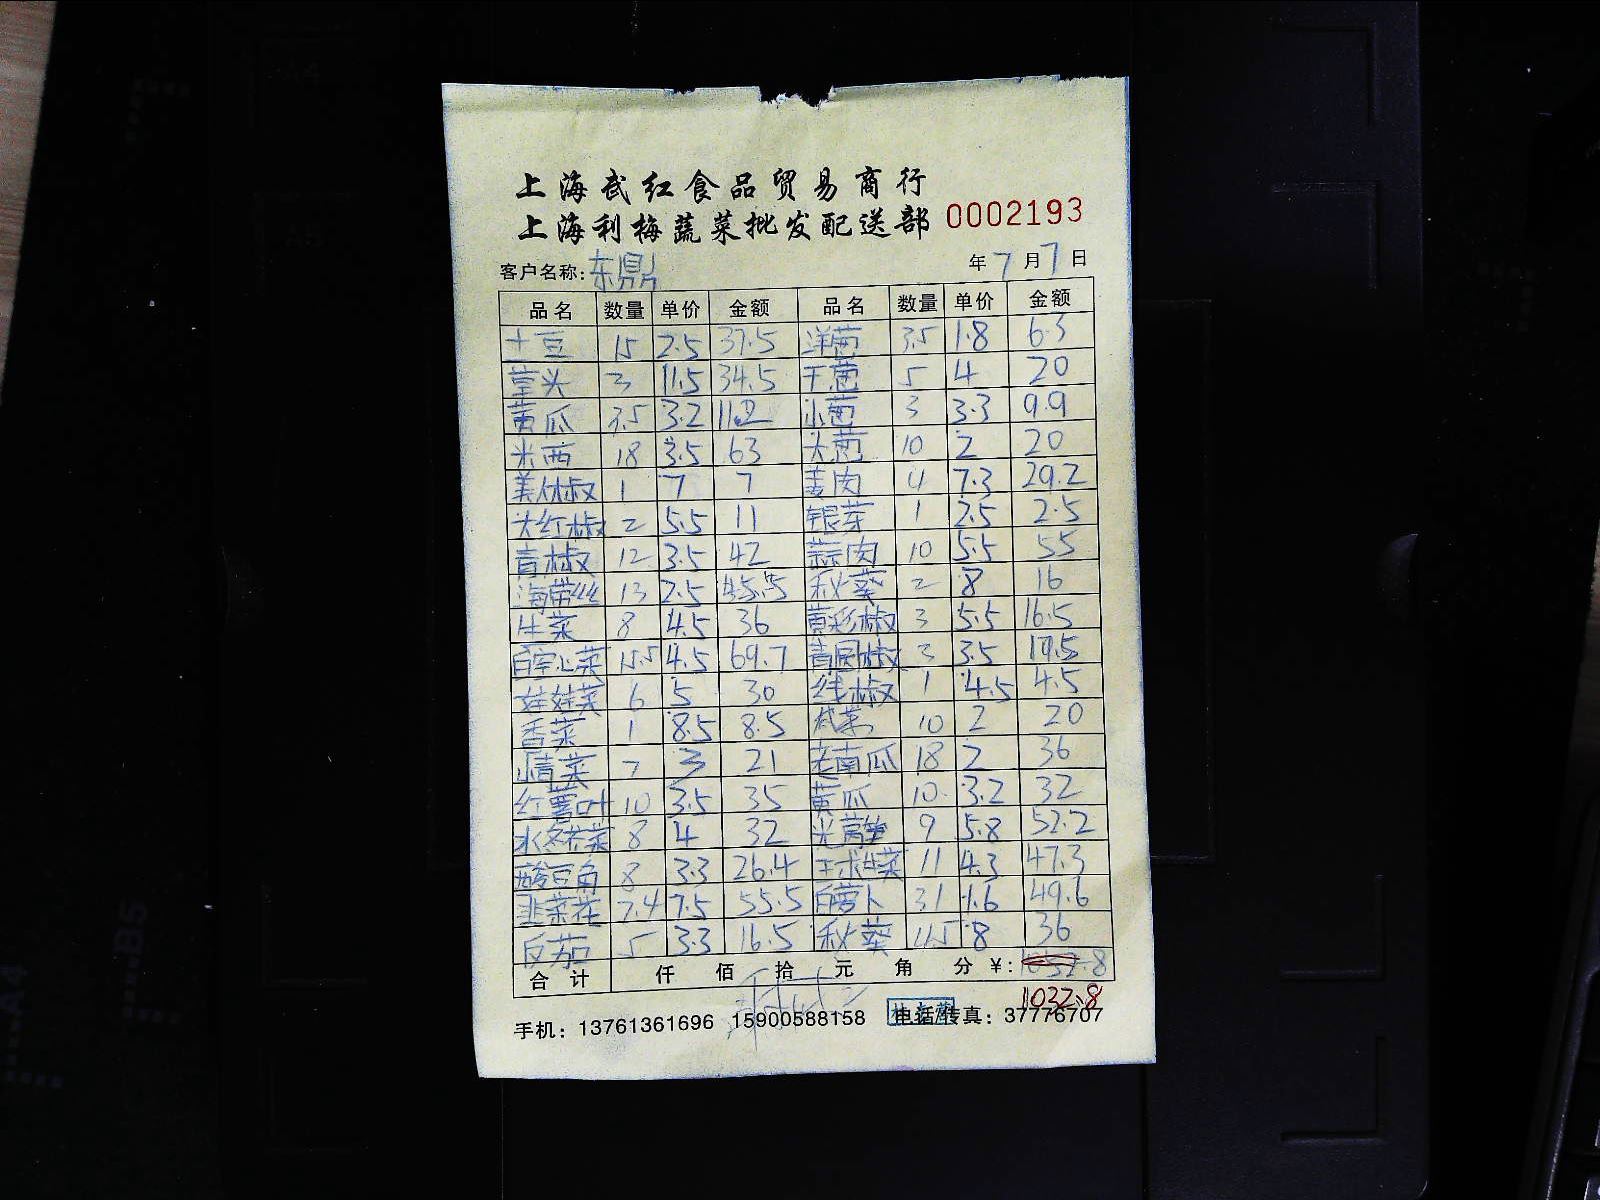 上海武红食品贸易商行
上海利梅蔬菜批发配送部 0002193
客户名称: 东鼎 年 7 月 7 日
品名 数量 单价 金额 品名 数量 单价 金额
土豆 15 2.5 37.5 洋葱 3.5 1.8 6.3
草头 3 11.5 34.5 干葱 5 4 20
黄瓜 3.5 3.2 11.2 小葱 3 3.3 9.9
米西 18 3.5 63 大葱 10 2 20
美人椒 1 7 7 姜肉 4 7.3 29.2
大红椒 2 5.5 11 银芽 1 2.5 2.5
青椒 12 3.5 42 蒜肉 10 5.5 55
海带丝 13 2.5 45.5 秋葵 2 8 16
生菜 8 4.5 36 黄彩椒 3 5.5 16.5
白空心菜 15.5 4.5 69.7 青圆椒 3 3.5 10.5
娃娃菜 6 5 30 线椒 1 4.5 4.5
香菜 1 8.5 8.5 咸菜 10 2 20
小青菜 7 3 21 老南瓜 18 2 36
红薯叶 10 3.5 35 黄瓜 10 3.2 32
水冬荠菜 8 4 32 光莴笋 9 5.8 52.2
酸豆角 8 3.3 26.4 球生菜 11 4.3 47.3
韭菜花 7.4 7.5 55.5 白萝卜 31 1.6 49.6
茄 5 3.3 16.5 秋葵 4.5 8 36
合计 仟 佰 拾 元 角 分 ¥: 1052.8
1032.8
手机: 13761361696 15900588158 电话/传真: 37776707